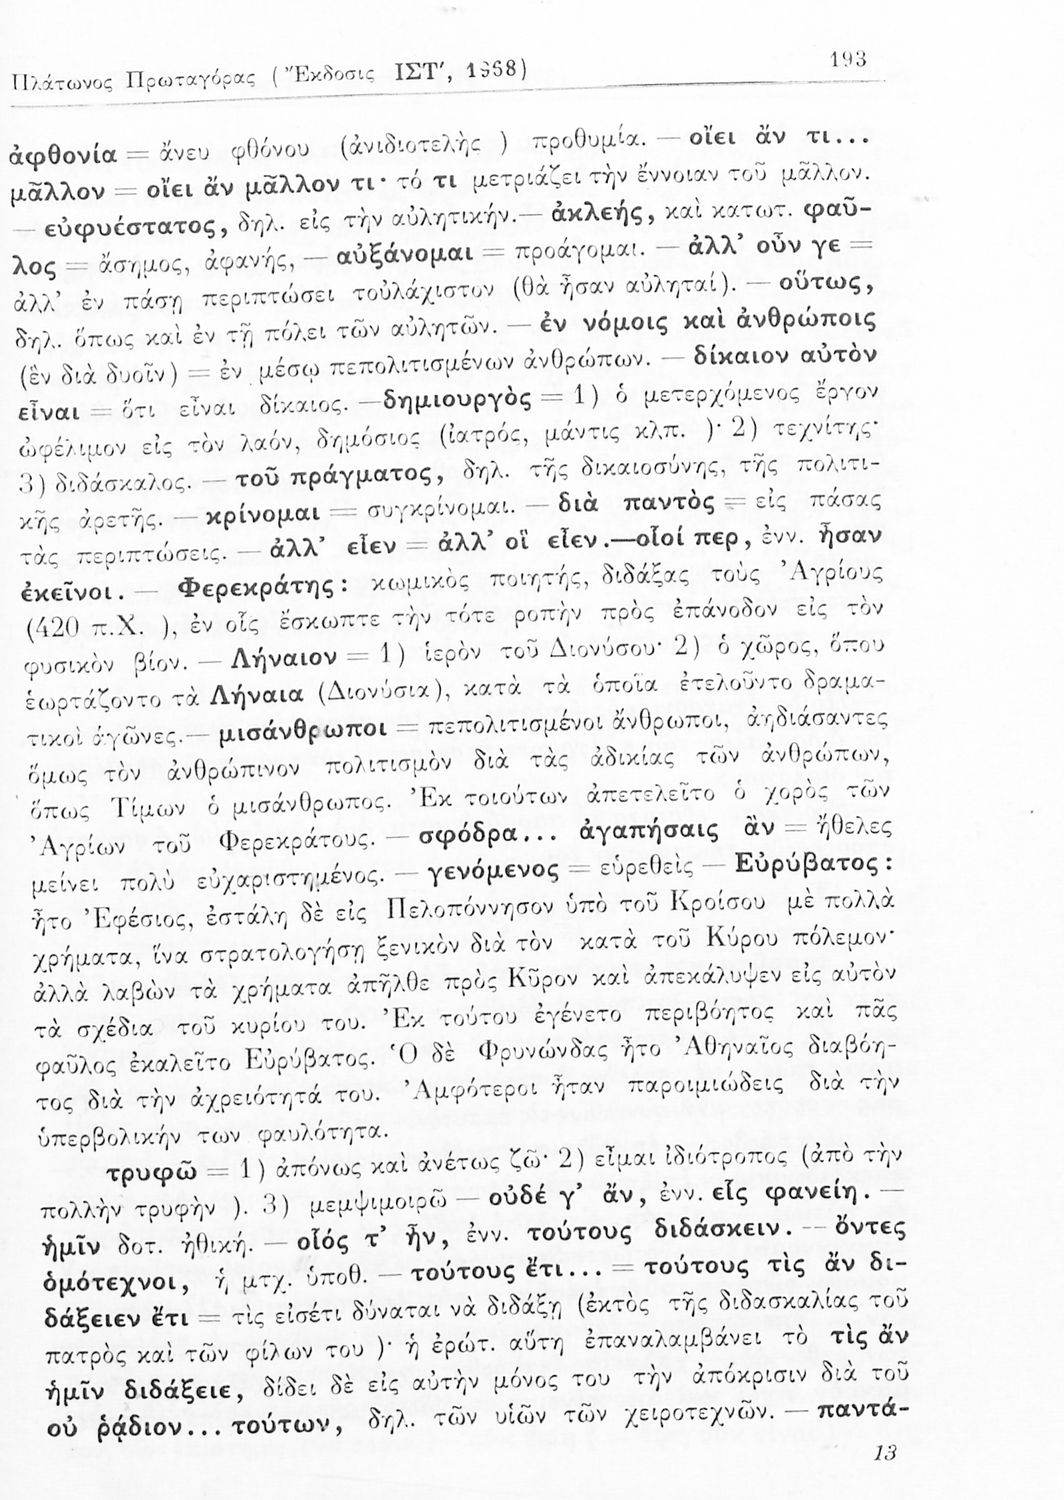 Πλάτωνος Πρωταγόρας ( Ἔκδοσις ΙΣΤ′, 1968) 193
ἀφθονία = ἄνευ φθόνου (ἀνιδιοτελὴς ) προθυμία. — οἴει ἄν τι...
μᾶλλον = οἴει ἄν μᾶλλον τι· τό τι μετριάζει τὴν ἔννοιαν τοῦ μᾶλλον.
— εὐφυέστατος, δηλ. εἰς τὴν αὐλητικήν.— ἀκλεής, καὶ κατωτ. φαῦ-
λος = ἄσημος, ἀφανής, — αὐξάνομαι = προάγομαι. — ἀλλ' οὖν γε =
ἀλλ' ἐν πάσῃ περιπτώσει τοὐλάχιστον (θὰ ἦσαν αὐληταί). — οὕτως,
δηλ. ὅπως καὶ ἐν τῇ πόλει τῶν αὐλητῶν. — ἐν νόμοις καὶ ἀνθρώποις
(ἓν διὰ δυοῖν) = ἐν μέσῳ πεπολιτισμένων ἀνθρώπων. — δίκαιον αὐτὸν
εἶναι = ὅτι εἶναι δίκαιος. —δημιουργὸς = 1) ὁ μετερχόμενος ἔργον
ὠφέλιμον εἰς τὸν λαόν, δημόσιος (ἰατρός, μάντις κλπ. )· 2) τεχνίτης·
3) διδάσκαλος. — τοῦ πράγματος, δηλ. τῆς δικαιοσύνης, τῆς πολιτι-
κῆς ἀρετῆς. — κρίνομαι = συγκρίνομαι. — διὰ παντὸς = εἰς πάσας
τὰς περιπτώσεις. — ἀλλ' εἶεν = ἀλλ' οἳ εἶεν.—οἷοί περ, ἐνν. ἦσαν
ἐκεῖνοι. — Φερεκράτης: κωμικὸς ποιητής, διδάξας τοὺς Ἀγρίους
(420 π.Χ. ), ἐν οἷς ἔσκωπτε τὴν τότε ροπὴν πρὸς ἐπάνοδον εἰς τὸν
φυσικὸν βίον. — Λήναιον = 1) ἱερὸν τοῦ Διονύσου· 2) ὁ χῶρος, ὅπου
ἑωρτάζοντο τὰ Λήναια (Διονύσια), κατὰ τὰ ὁποῖα ἐτελοῦντο δραμα-
τικοὶ ἀγῶνες.— μισάνθρωποι = πεπολιτισμένοι ἄνθρωποι, ἀηδιάσαντες
ὅμως τὸν ἀνθρώπινον πολιτισμὸν διὰ τὰς ἀδικίας τῶν ἀνθρώπων,
ὅπως Τίμων ὁ μισάνθρωπος. Ἐκ τοιούτων ἀπετελεῖτο ὁ χορὸς τῶν
Ἀγρίων τοῦ Φερεκράτους. — σφόδρα... ἀγαπήσαις ἂν = ἤθελες
μείνει πολὺ εὐχαριστημένος. — γενόμενος = εὑρεθεὶς — Εὐρύβατος:
ἦτο Ἐφέσιος, ἐστάλη δὲ εἰς Πελοπόννησον ὑπὸ τοῦ Κροίσου μὲ πολλὰ
χρήματα, ἵνα στρατολογήσῃ ξενικὸν διὰ τὸν κατὰ τοῦ Κύρου πόλεμον·
ἀλλὰ λαβὼν τὰ χρήματα ἀπῆλθε πρὸς Κῦρον καὶ ἀπεκάλυψεν εἰς αὐτὸν
τὰ σχέδια τοῦ κυρίου του. Ἐκ τούτου ἐγένετο περιβόητος καὶ πᾶς
φαῦλος ἐκαλεῖτο Εὐρύβατος. Ὁ δὲ Φρυνώνδας ἦτο Ἀθηναῖος διαβόη-
τος διὰ τὴν ἀχρειότητά του. Ἀμφότεροι ἦταν παροιμιώδεις διὰ τὴν
ὑπερβολικήν των φαυλότητα.
τρυφῶ = 1) ἀπόνως καὶ ἀνέτως ζῶ· 2) εἶμαι ἰδιότροπος (ἀπὸ τὴν
πολλὴν τρυφὴν ). 3) μεμψιμοιρῶ — οὐδέ γ' ἄν, ἐνν. εἷς φανείη. —
ἡμῖν δοτ. ἠθική. — οἷός τ' ἦν, ἐνν. τούτους διδάσκειν. — ὄντες
ὁμότεχνοι, ἡ μτχ. ὑποθ. — τούτους ἔτι... = τούτους τὶς ἄν δι-
δάξειεν ἔτι = τὶς εἰσέτι δύναται νὰ διδάξῃ (ἐκτὸς τῆς διδασκαλίας τοῦ
πατρὸς καὶ τῶν φίλων του )· ἡ ἐρώτ. αὕτη ἐπαναλαμβάνει τὸ τὶς ἄν
ἡμῖν διδάξειε, δίδει δὲ εἰς αὐτὴν μόνος του τὴν ἀπόκρισιν διὰ τοῦ
οὐ ῥᾴδιον... τούτων, δηλ. τῶν υἱῶν τῶν χειροτεχνῶν. — παντά-
13